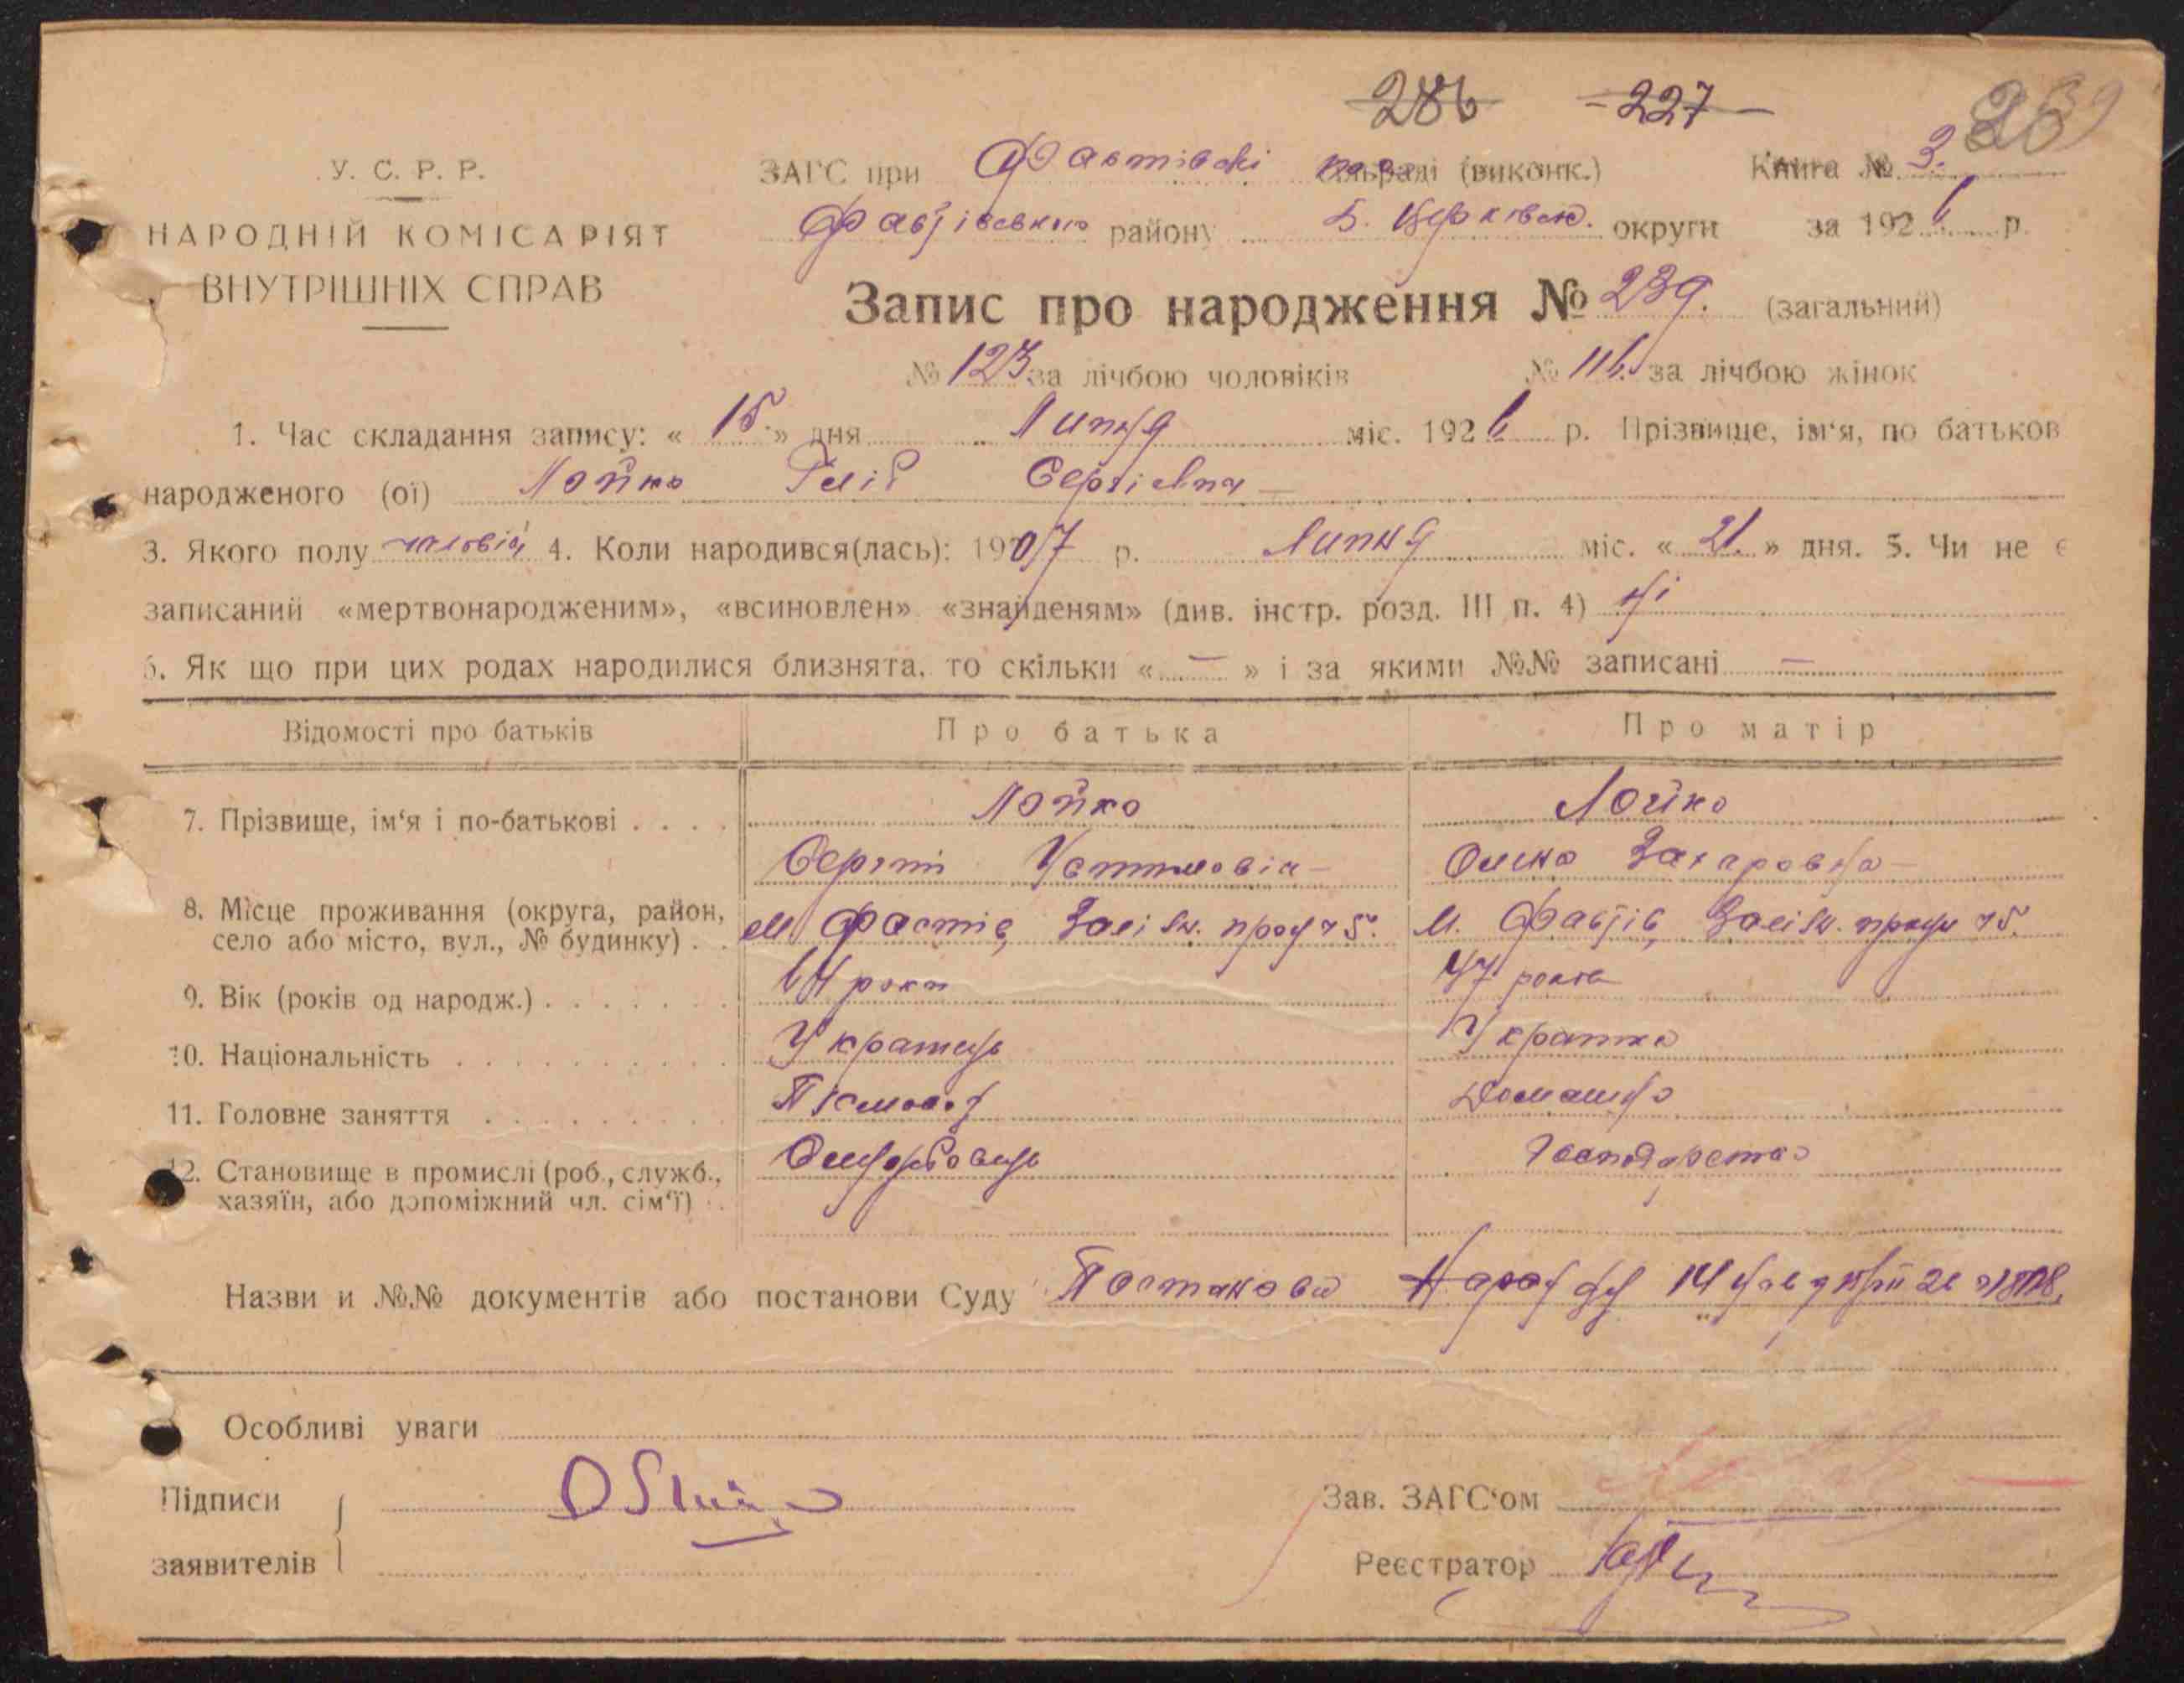 286 227 239
У. С. Р. Р.
НАРОДНІЙ КОМІСАРІЯТ
ВНУТРІШНІХ СПРАВ
ЗАГС при Фастівскі сільраді (виконк.) Книга № 3.
Фастівського району Б. Церківськ. округи за 1926 р.
Запис про народження № 239. (загальний)
№ 123 за лічбою чоловіків № 116. за лічбою жінок
1. Час складання запису: « 15. » дня Липня міс. 1926 р. Прізвище, ім'я, по батьков
народженого (ої) Лойко Гліб Сергієвич
3. Якого полу чоловіч 4. Коли народився(лась): 1907 р. Липня міс. « 21. » дня. 5. Чи не є
записаний «мертвонародженим», «всиновлен» «знайденям» (див. інстр. розд. III п. 4) ні
6. Як що при цих родах народилися близнята, то скільки « — » і за якими №№ записані —
Відомості про батьків Про батька Про матір
7. Прізвище, ім'я і по-батькові Лойко Лойко
Сергій Устимовіч Олена Захаровна
8. Місце проживання (округа, район, село або місто, вул., № будинку) м Фастів, Заліzн. 75. М. Фастів, 75.
9. Вік (років од народж.) 64 роки 47 років
10. Національність Українець Українка
11. Головне заняття Домашнє
12. Становище в промислі (роб., служб., хазяїн, або допоміжний чл. сім'ї) господарство
Назви и №№ документів або постанови Суду Постанова 14
Особливі уваги
Підписи
заявителів
Зав. ЗАГС'ом
Реєстратор